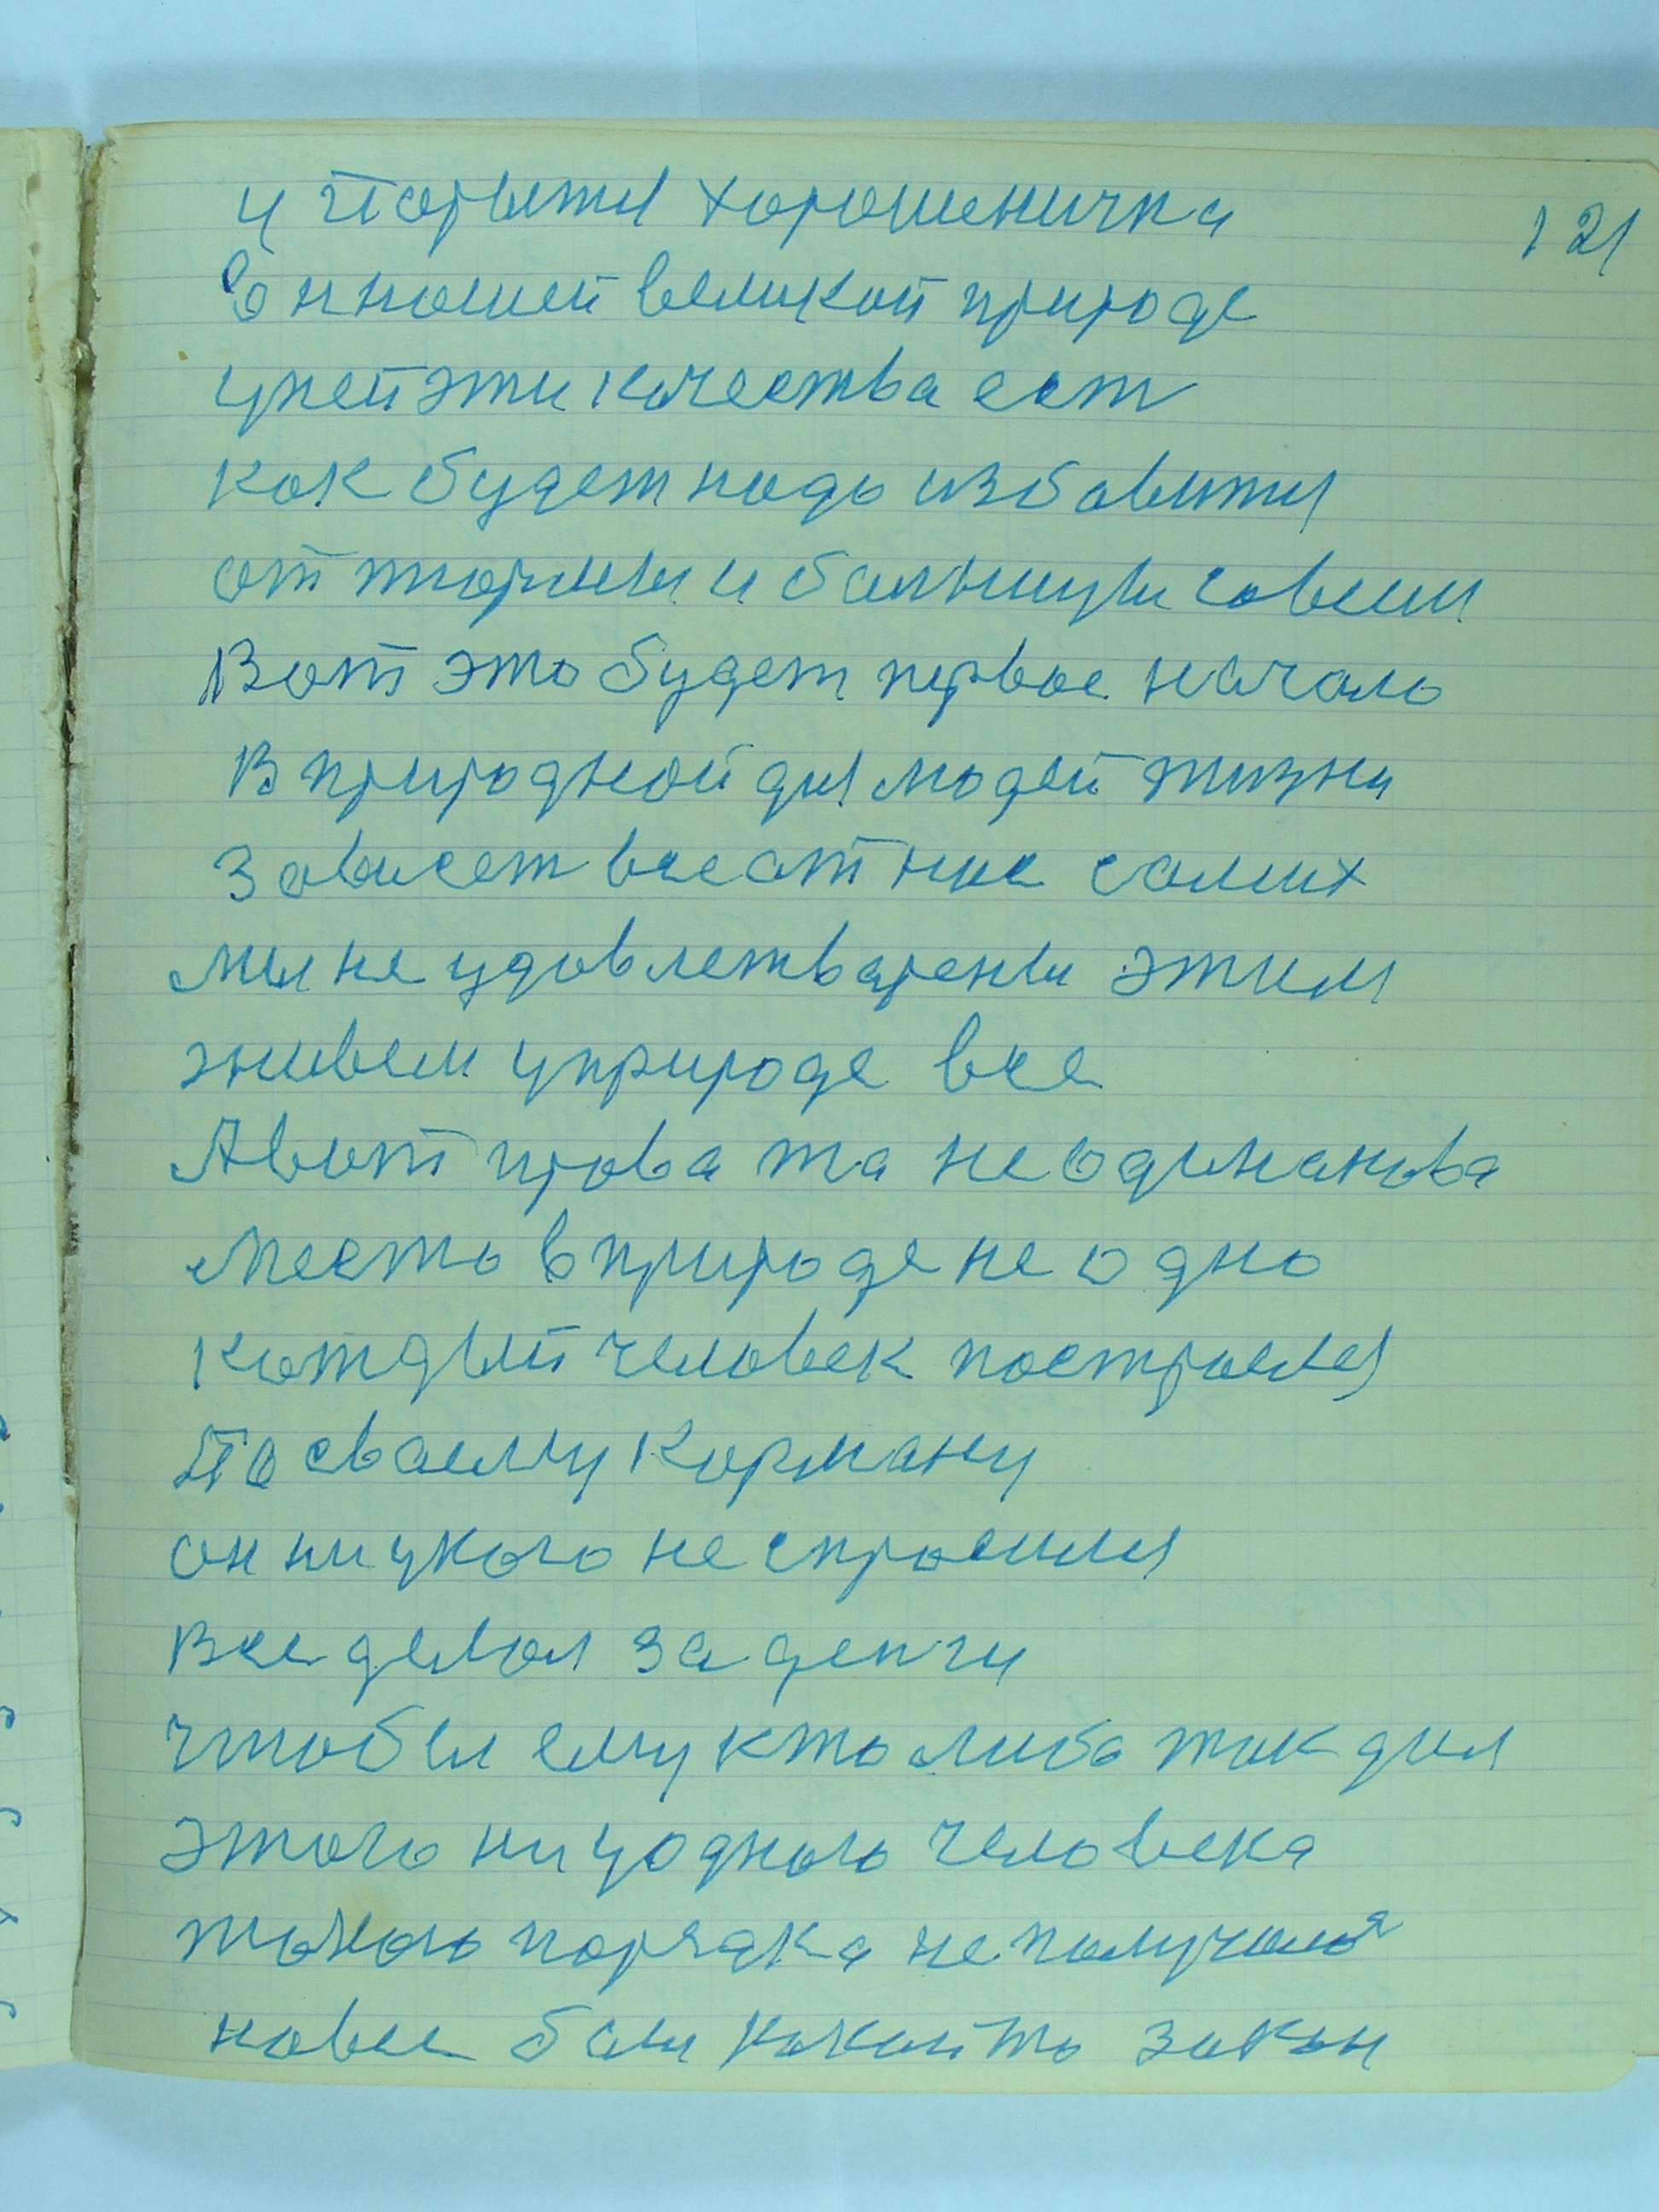 121
и парыжи хорошеничка
в ннашей великой природе
у ней эти качества ест
как будет надо избавится
от тюрмы и бальницы совсем
Вот это будет первое начало
в природной для людей жизни
Зависет все от нас самих
мы не удовлетварены этим
живем у природе все
А вот права та не одинакова
место в природе не одно
каждый человек построился
По сваему карману
он ни у кого не спросился
все делал за денги
чтобы ему кто либо так дал
этого ни у одного человека
такого порядка не получался
на все был какойто закон